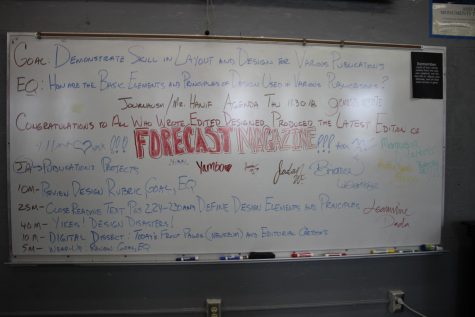 GOAL: DEMONSTRATE SKILL IN LAYOUT AND DESIGN FOR VARIOUS PUBLICATIONS
EQ: HOW ARE THE BASIC ELEMENTS AND PRINCIPLES OF DESIGN USED IN VARIOUS PUBLICATIONS?
JOURNALISM / MR. HANIF AGENDA THU 11.30.18
CONGRATULATIONS TO ALL WHO WROTE EDITED DESIGNED, PRODUCED, THE LATEST EDITION OF
FORECAST MAGAZINE!!!
PUBLICATIONS PROJECTS
10M- REVIEW DESIGN RUBRIC GOAL, EQ
25M- CLOSE READING TEXT PGS 224-230 AND DEFINE DESIGN ELEMENTS AND PRINCIPLES
40M- YICES! DESIGN DISASTERS!
10M- DIGITAL DISSECT: TODAY'S FRONT PAGES (NEWSEUM) AND EDITORIAL CARTOONS
5M- WRAP-UP REVIEW GOAL, EQ